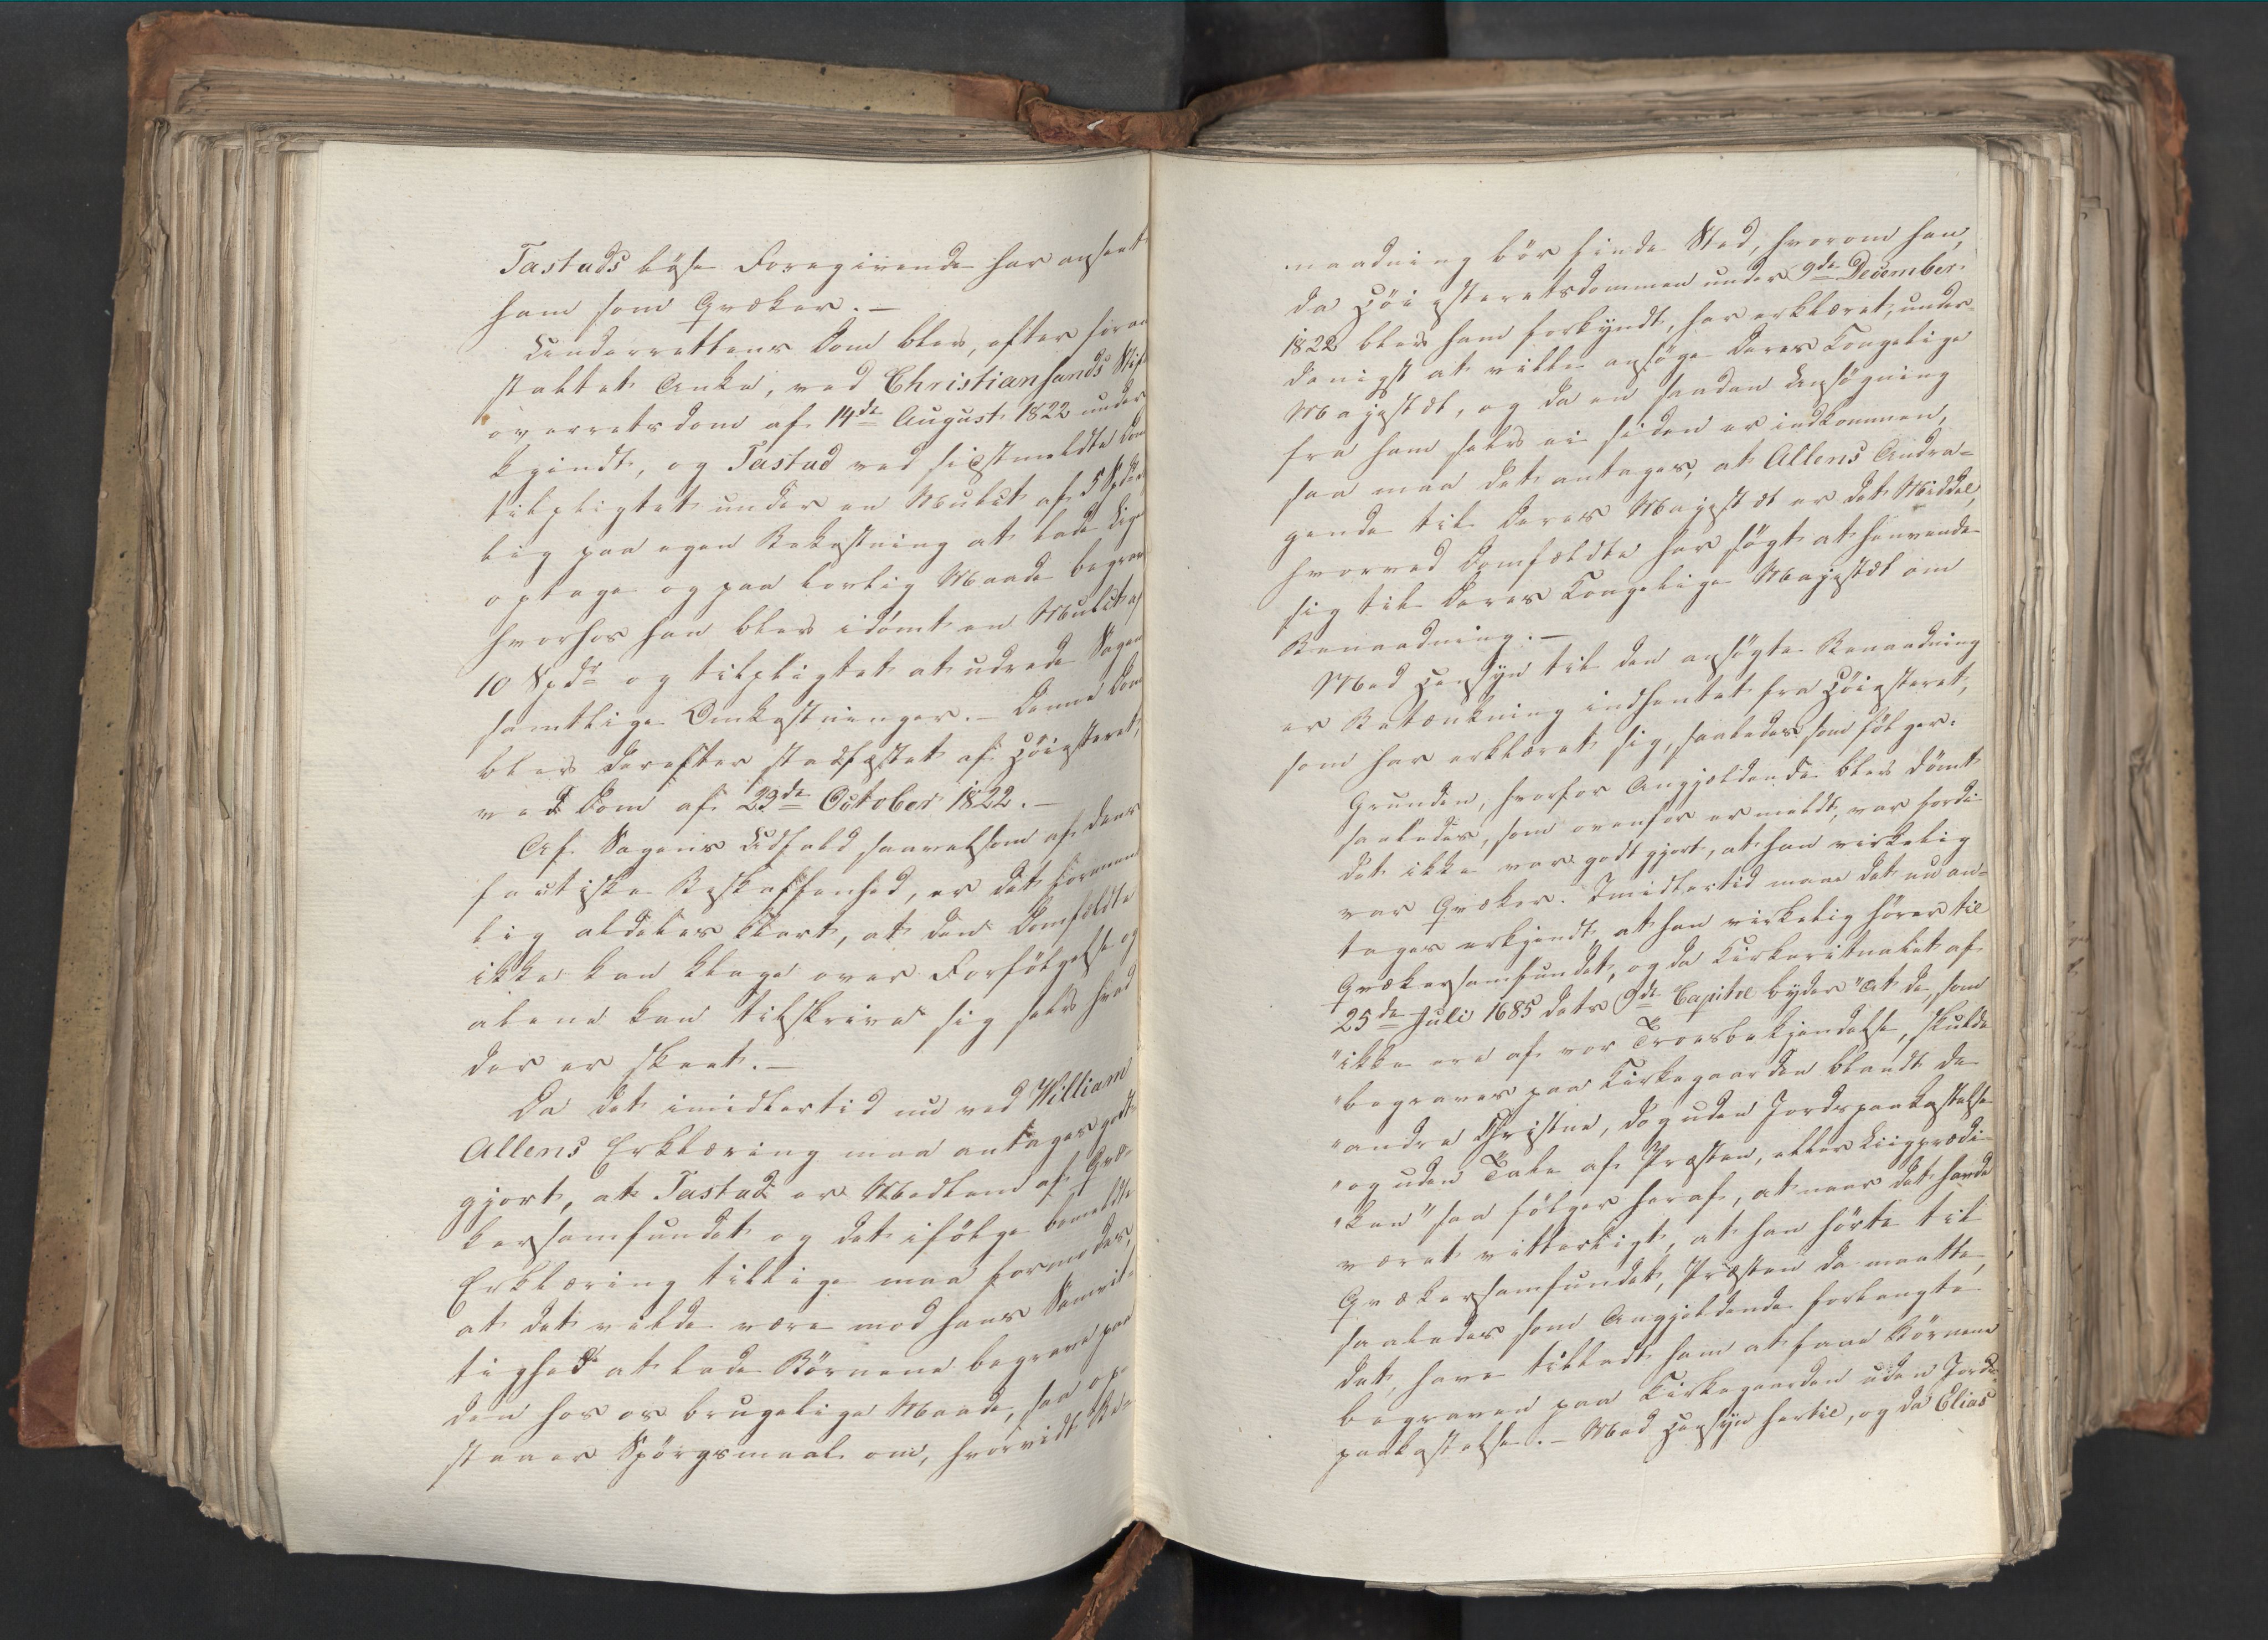 Tastads løse Foregivende har anseet
ham som Qvæker. —
Underrettens Dom blev, efter foran
staltet Anke, ved Christiansands Stift
overretsdom af 14de August 1822 under
kjendt, og Tastad ved sidstmeldte Dom
tilpligtet under en Mulct af 5 Spdr dag
lig paa egen Bekostning at lade Ligene
optage og paa lovlig Maade begrave
hvorhos han blev idømt en Mulct af
10 Spdr og tilpligtet at udrede Sagens
samtlige Omkostninger. — Denne Dom
blev derefter stadfæstet af Høiesteret,
ved Dom af 23de October 1822. —
Af Sagens Udfald saavelsom af dens
factiske Beskaffenhed, er det formeen
lig aldeles klart, at den Domfældte
ikke kan klage over Forfølgelse og
alene kan tilskrive sig selv hvad
der er skeet. —
Da det imidlertid nu ved William
Allens Erklæring maa antages godt-
gjort, at Tastad er Medlem af Qvæ-
kersamfundet og det ifølge bemeldte
Erklæring tillige maa formodes,
at det vilde være mod hans Samvit-
tighed at lade Børnene begrave paa
den hos os brugelige Maade, saa op-
staaer Spørgsmaal om, hvorvidt Be-
naadning bør finde Sted, hvorom han,
da Høiesteretsdommen under 9de December
1822 blev ham forkyndt, har erklæret, under-
danigst at ville ansøge Deres Kongelige
Majestæt, og da en saadan Ansøgning
fra ham selv ei siden er indkommen,
saa maa det antages, at Allens Andra-
gende til Deres Majestæt er det Middel,
hvorved Domfældte har søgt at henvende
sig til Deres Kongelige Majestæt om
Benaadning. —
Med Hensyn til den ansøgte Benaadning
er Betænkning indhentet fra Høiesteret,
som har erklæret sig, saaledes som følger:
Grunden, hvorfor Angjeldende blev dømt
saaledes, som ovenfor er meldt, var fordi
det ikke var godtgjort, at han virkelig
var Qvæker. Imidlertid maae det nu an-
tages erkjendt, at han virkelig hører til
Qvækersamfundet, og da Kirkeritualet af
25de Juli 1685 dets 9de Capitel byder "at de, som
"ikke ere af vor Troesbekjendelse, skulde
"begraves paa Kirkegaarden blandt de
"andre Christne, dog uden Jordspaakastelse
"og uden Tale af Præsten, eller Liigprædi-
"ken" saa følger heraf, at naar det havde
været vitterligt, at han hørte til
Qvækersamfundet, Præsten da maatte,
saaledes som Angjeldende forlangte
det, have tilladt ham at faae Børnene
begraven paa Kirkegaarden uden Jords-
paakastelse. — Med Hensyn hertil, og da Elias